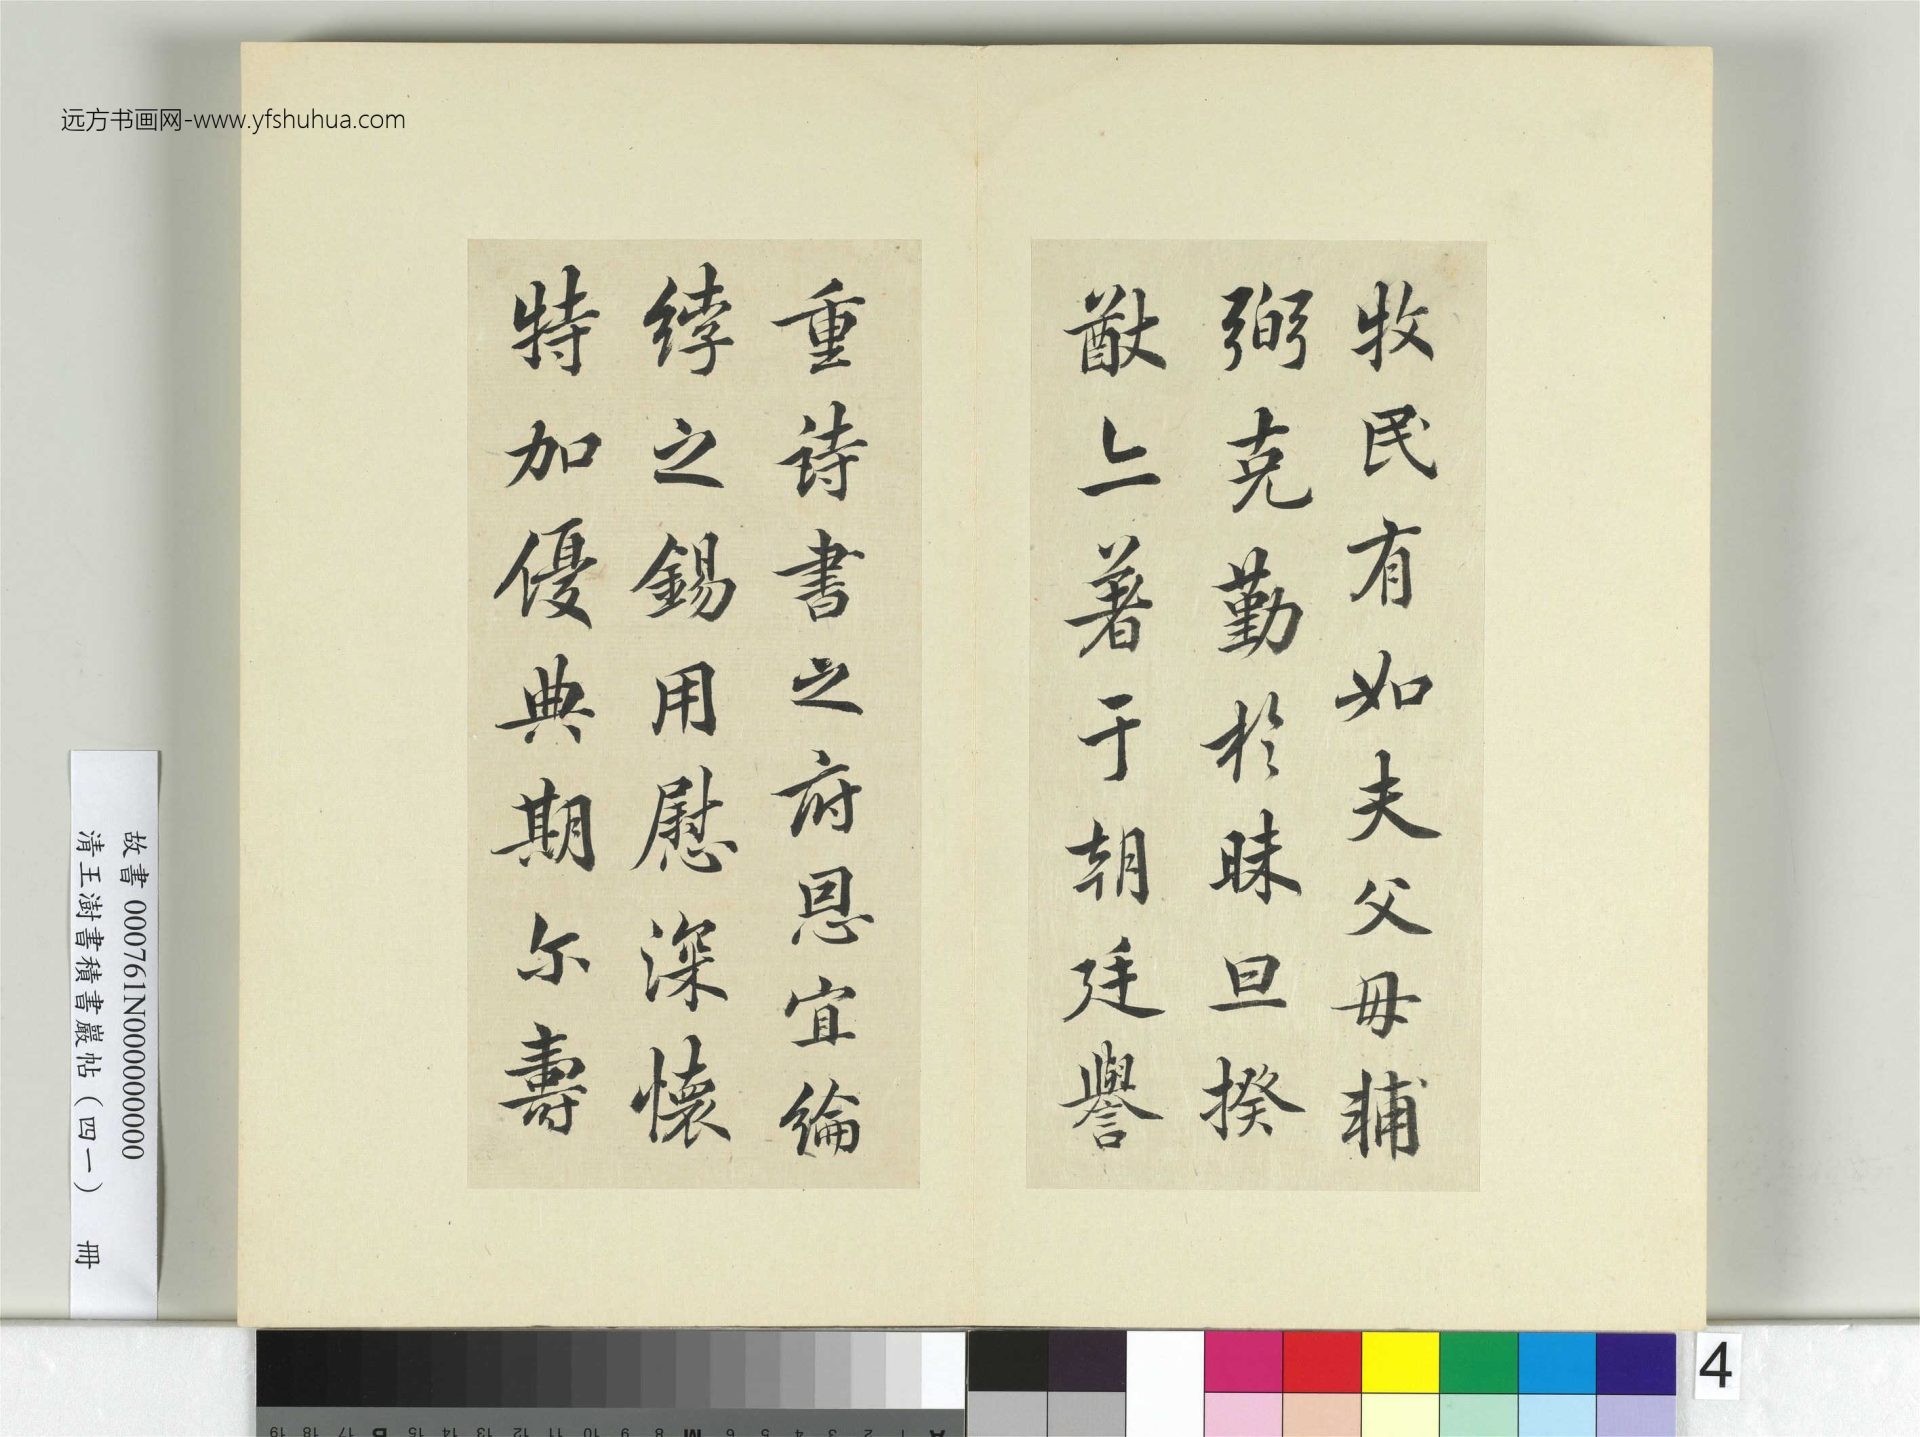 远方书画网-www.yfshuhua.com
牧民有如夫父母輔
弼克勤於昧旦揆
猷亼著于朝廷譽
重詩書之府恩宜綸
綍之錫用慰深懷
特加優典期尔壽
故書 000761N000000000
清王澍書積書巖帖（四一） 冊
4